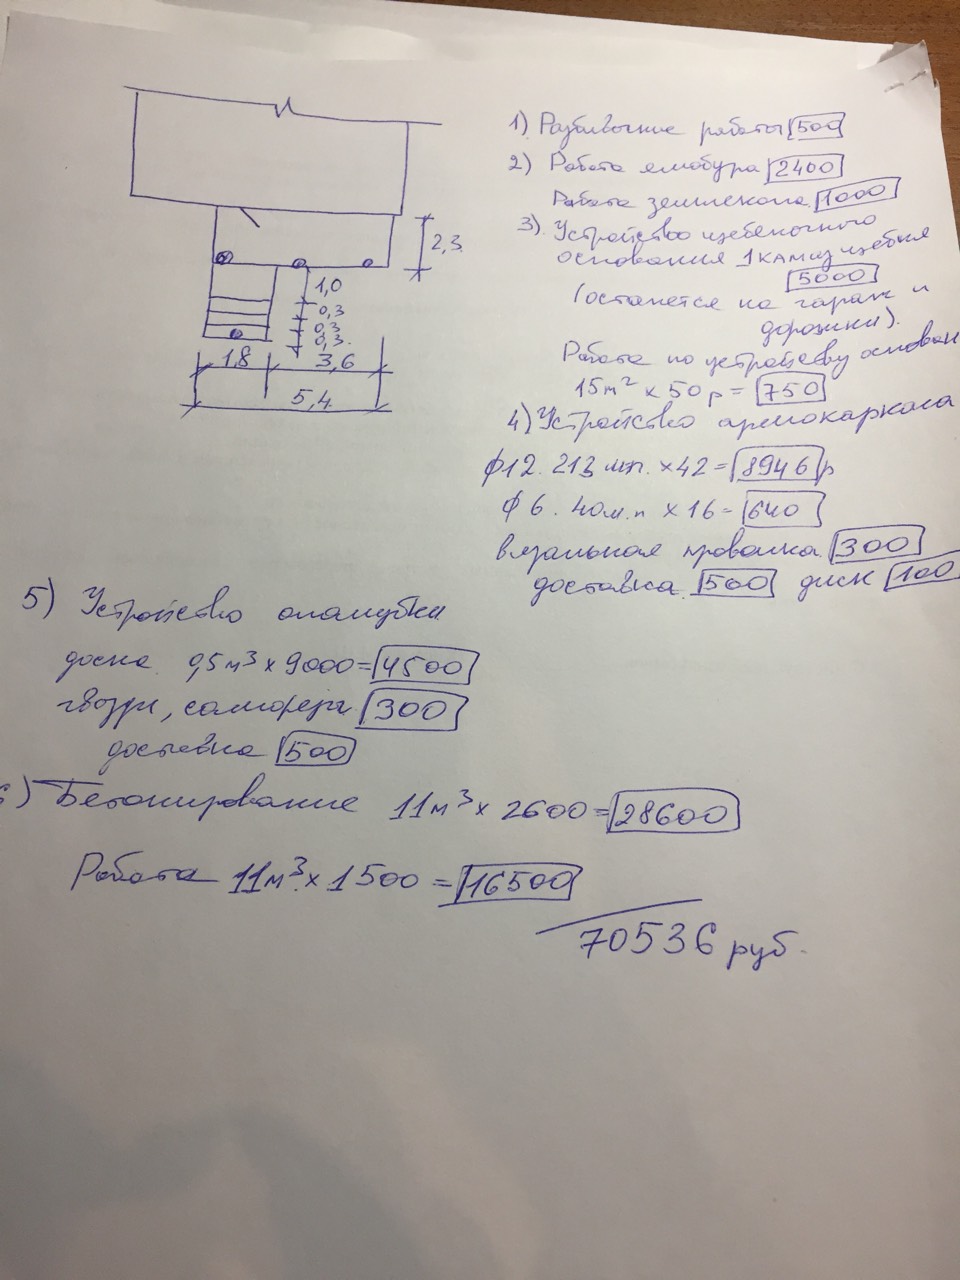 2,3
1,0
0,3
0,3
0,3
1,8 3,6
5,4
1) Разбивочные работы 500
2) Работа ямобура 2400
Работа землекопа 1000
3) Устройство щебёночного
основания 1 камаз щебня
5000
(останется на гараж и
дорожки).
Работа по устройству основан
15м² х 50р = 750
4) Устройство армокаркаса
ф12. 213 мп. х42 = 8946 р
ф 6. 40м.п х 16 = 640
вязальная проволка 300
доставка 500 диск 100
5) Устройство опалубки
доска 0,5м³ х 9000 = 4500
гвозди, саморезы 300
доставка 500
6) Бетонирование 11м³ х 2600 = 28600
Работа 11м³ х 1500 = 16500
70536 руб.